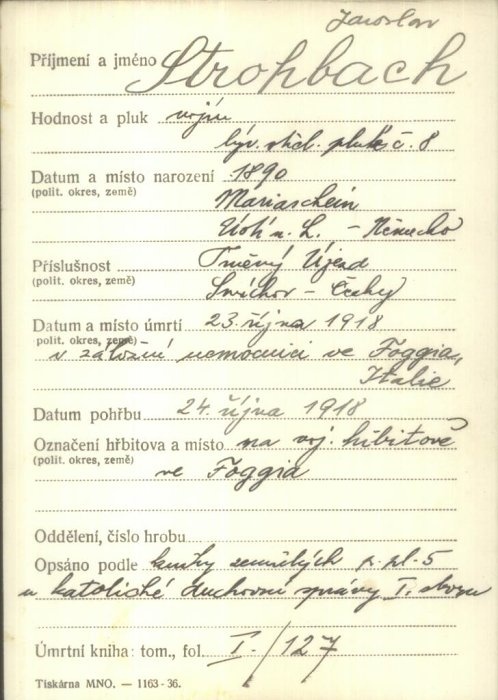 Jaroslav
Příjmení a jméno Strohbach
Hodnost a pluk vojín
býv. střel. pluk č. 8
Datum a místo narození 1890
(polit. okres, země) Mariaschein
Ústí n. L. - Německo
Příslušnost Trněvý Újezd
(polit. okres, země) Smíchov - Čechy
Datum a místo úmrtí 23. října 1918
(polit. okres, země)
v záložní nemocnici ve Foggia,
Italie
Datum pohřbu 24. října 1918
Označení hřbitova a místo na voj. hřbitově
(polit. okres, země) ve Foggia
Oddělení, číslo hrobu
Opsáno podle knihy zemřelých p. pl. 5
u katolické duchovní správy I. sboru
Úmrtní kniha: tom., fol. I./127
Tiskárna MNO. — 1163-36.